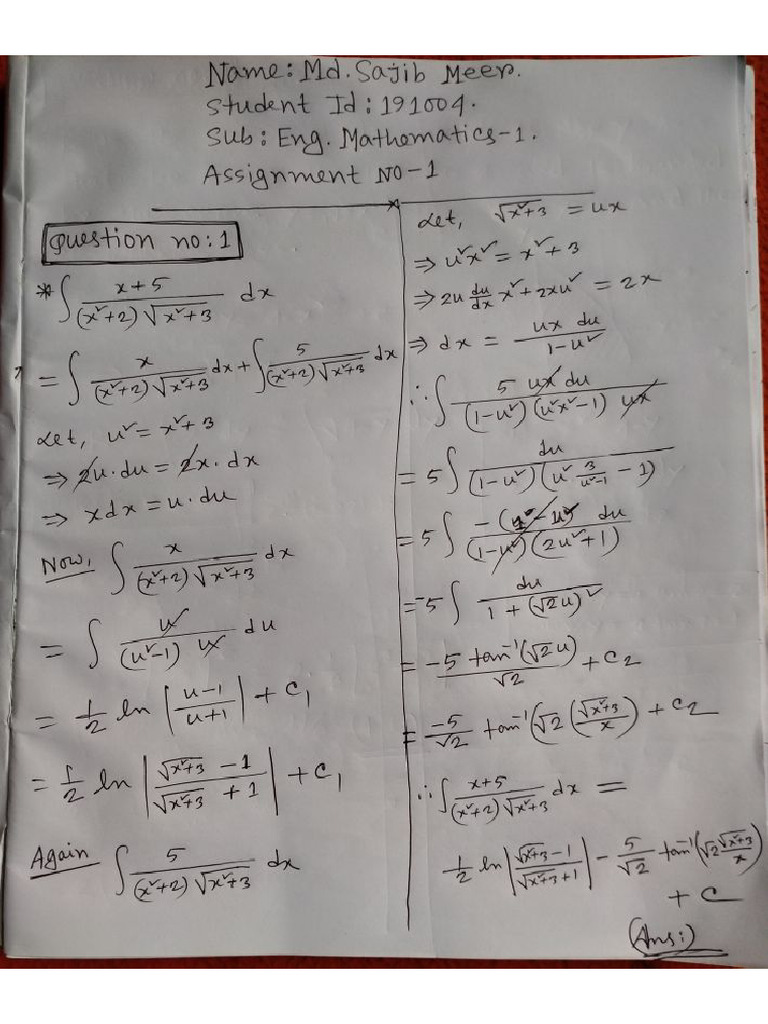 Name: Md. Sajib Meer.
Student Id: 191004.
Sub: Eng. Mathematics-1.
Assignment NO-1
Question no: 1
* ∫ (x+5)/((x²+2)√(x²+3)) dx
= ∫ x/((x²+2)√(x²+3)) dx + ∫ 5/((x²+2)√(x²+3)) dx
Let, u² = x²+3
⇒ 2u·du = 2x·dx
⇒ xdx = u·du
Now, ∫ x/((x²+2)√(x²+3)) dx
= ∫ u/((u²-1) u) du
= 1/2 ln |(u-1)/(u+1)| + C₁
= 1/2 ln |(√(x²+3) - 1)/(√(x²+3) + 1)| + C₁
Again ∫ 5/((x²+2)√(x²+3)) dx
Let, √(x²+3) = ux
⇒ u²x² = x²+3
⇒ 2u du/dx x² + 2xu² = 2x
⇒ dx = (ux du)/(1-u²)
∴ ∫ (5 ux du)/((1-u²)(u²x²-1) ux)
= 5 ∫ du/((1-u²)(u² 3/(u²-1) - 1))
= 5 ∫ (-(1-u²) du)/((1-u²)(2u²+1))
= -5 ∫ du/(1+(√2u)²)
= (-5 tan⁻¹(√2u))/√2 + C₂
= -5/√2 tan⁻¹(√2 (√(x²+3)/x) + C₂
∴ ∫ (x+5)/((x²+2)√(x²+3)) dx =
1/2 ln |(√(x²+3)-1)/(√(x²+3)+1)| - 5/√2 tan⁻¹(√2 √(x²+3)/x)
+ C
(Ans:)